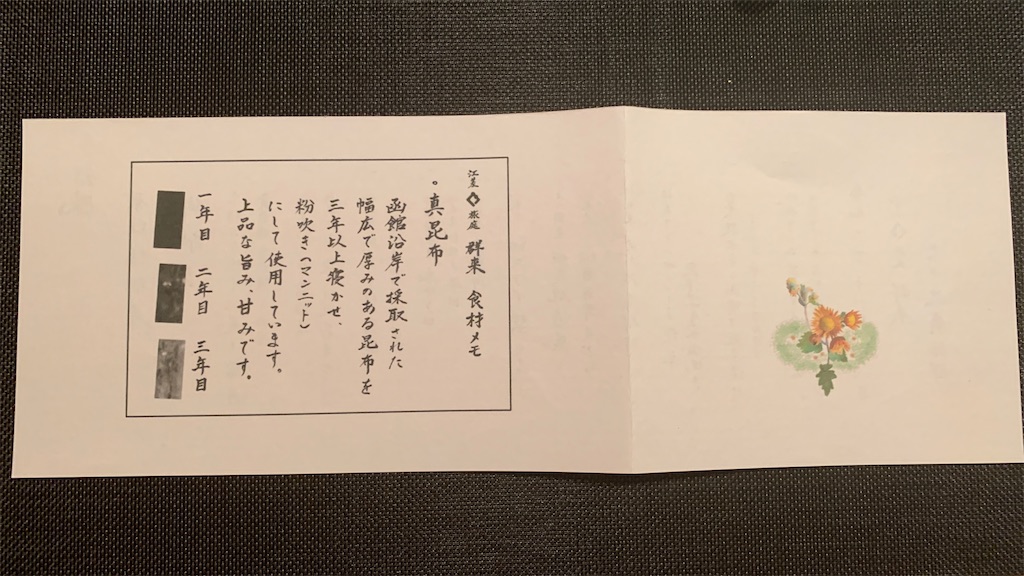 江差 旅庭 群来 食材メモ
。真昆布
函館沿岸で採取された
幅広で厚みのある昆布を
三年以上寝かせ、
粉吹き(マンニット)
にして使用しています。
上品な旨み、甘みです。
一年目 二年目 三年目